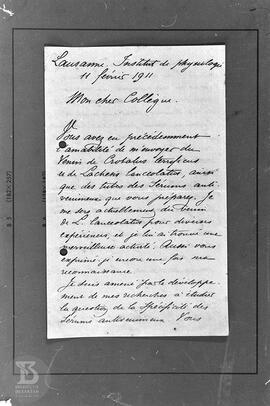 Lausanne. Institut de physiologie
11 février 1911
Mon cher Collègue.
Vous avez eu précédemment
l'amabilité de m'envoyer du
Venin de Crotalus terrificus
et de Lachesis lanceolatus, ainsi
que des tubes des Sérums anti-
venimeux que vous préparez. Je
me sers actuellement du venin
de L. lanceolatus pour diverses
expériences, et je lui ai trouvé une
merveilleuse activité. Aussi vous
exprimé-je encore une fois ma
reconnaissance.
Je suis amené par le développe-
ment de mes recherches à étudier
la question de la Spécificité des
Sérums antivenimeux. Vous